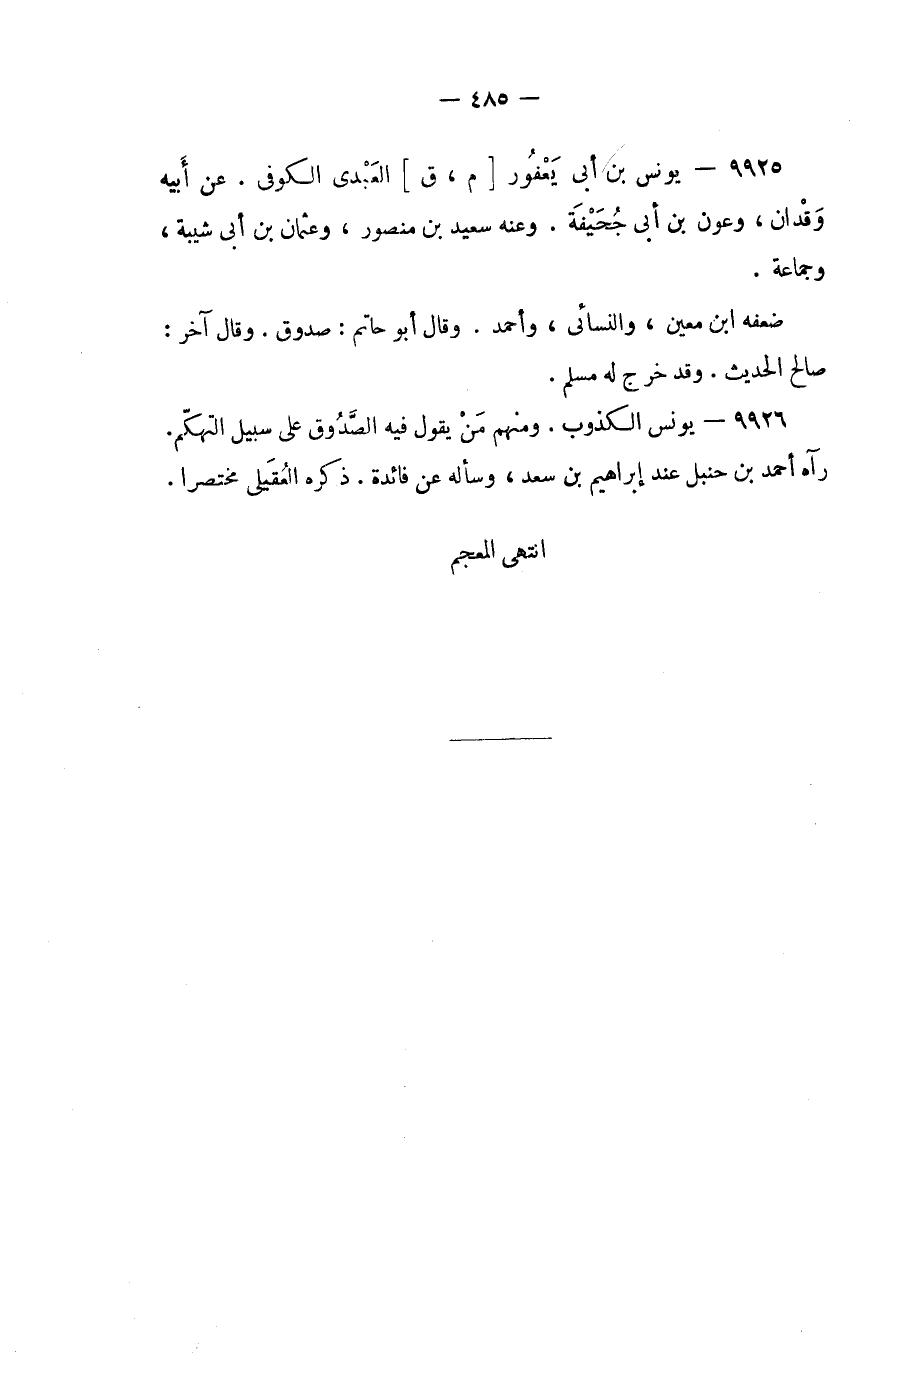 — ٤٨٥ —
٩٩٢٥ — يونس بن أبى يَعْفُور [ م ، ق ] العَبْدى الكوفى . عن أبيه
وَقْدان ، وعون بن أبى جُحَيْفَة . وعنه سعيد بن منصور ، وعثمان بن أبى شيبة ،
وجماعة .
ضعفه ابن معين ، والنسائى ، وأحمد . وقال أبو حاتم : صدوق . وقال آخر :
صالح الحديث . وقد خرج له مسلم .
٩٩٢٦ — يونس الكذوب . ومنهم مَنْ يقول فيه الصَّدُوق على سبيل التهكّم.
رآه أحمد بن حنبل عند إبراهيم بن سعد ، وسأله عن فائدة . ذكره العُقَيلى مختصرا .
انتهى المعجم